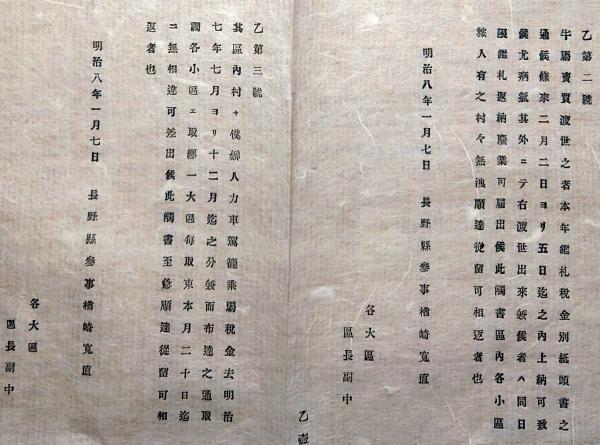 乙第二號
牛馬賣買渡世之者本年鑑札税金別紙頭書之
通候條來二月二日ヨリ五日迄之內上納可致
候尤病氣其外ニテ右渡世出來兼候者ヘ同日
限鑑札返納廢業可屆出候此觸書區內各小區
旅人有之村々無洩順達從留可相返者也
明治八年一月七日 長野縣參事楢崎寬直
各大區
區長副中
乙第三號
其區內村々僕婢人力車駕籠乘馬税金去明治
七年七月ヨリ十二月迄之分兼而布達之通取
調各小區ェ取纒一大區每取束本月二十日迄
ニ無相違可差出候此觸書至急順達從留可相
返者也
明治八年一月七日 長野縣參事楢崎寬直
各大區
區長副中
乙壹